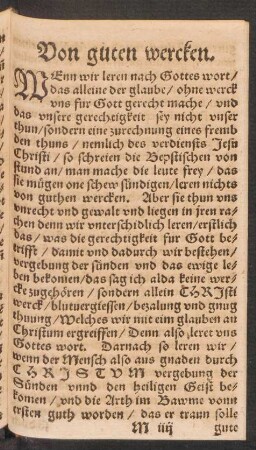 Von guten wercken.
WEnn wir leren nach Gottes wort/
das alleine der glaube/ ohne werck
vns fur Gott gerecht mache/ vnd
das vnsere gerechtigkeit sey nicht vnser
thun/ sondern eine zurechnung eines fremb
den thuns/ nemlich des verdiensts Jesu
Christi/ so schreien die Bepstischen von
stund an/ man mache die leute frey/ das
sie mügen one schew sündigen/ leren nichts
von guthen wercken. Aber sie thun vns
vnrecht vnd gewalt vnd liegen in jren ra-
chen denn wir vnterschidlich leren/ erstlich
das/ was die gerechtigkeit fur Gott be-
trifft/ damit vnd dadurch wir bestehen/
vergebung der sünden vnd das ewige le-
ben bekomen/ das sag ich alda keine wer-
cke zugehören/ sondern allein CHRJsti
werck/ blutuergiessen/ bezalung vnd gnug
thuung/ Welches wir mit eim glauben an
Christum ergreiffen/ Denn also leret vns
Gottes wort. Darnach so leren wir/
wenn der Mensch also aus gnaden durch
CHRJSTVM vergebung der
Sünden vnnd den heiligen Geist be-
komen/ vnd die Arth im Bawme vonn
ersten guth worden/ das er traun solle
M iiij gute